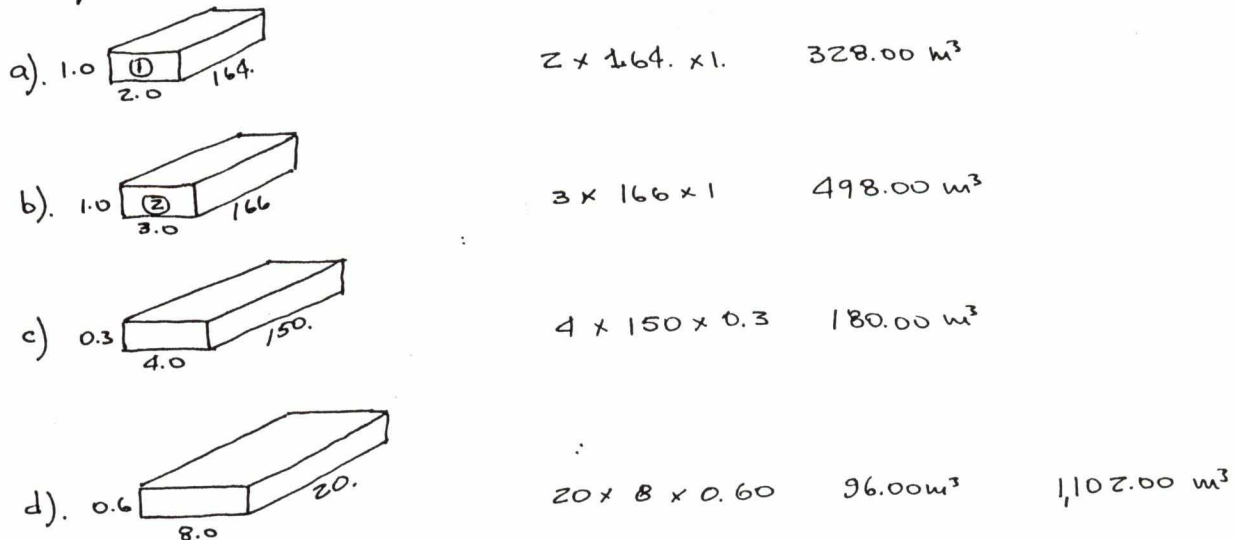 a). 1.0 ① 2.0 164. 2 x 164. x 1. 328.00 m³
b). 1.0 ② 3.0 166 3 x 166 x 1 498.00 m³
c) 0.3 4.0 150. 4 x 150 x 0.3 180.00 m³
d). 0.6 8.0 20. 20 x 8 x 0.60 96.00m³ 1,102.00 m³